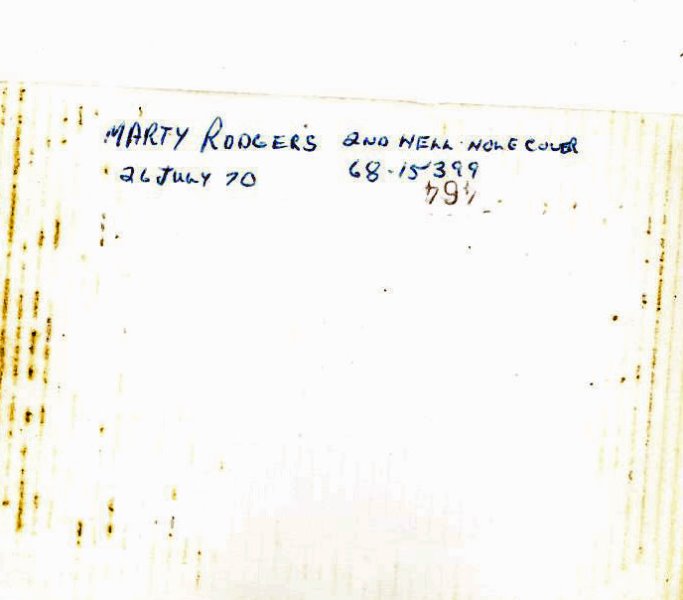 MARTY RODGERS 2ND HELL HOLE COVER
26 JULY 70 68-15399
164